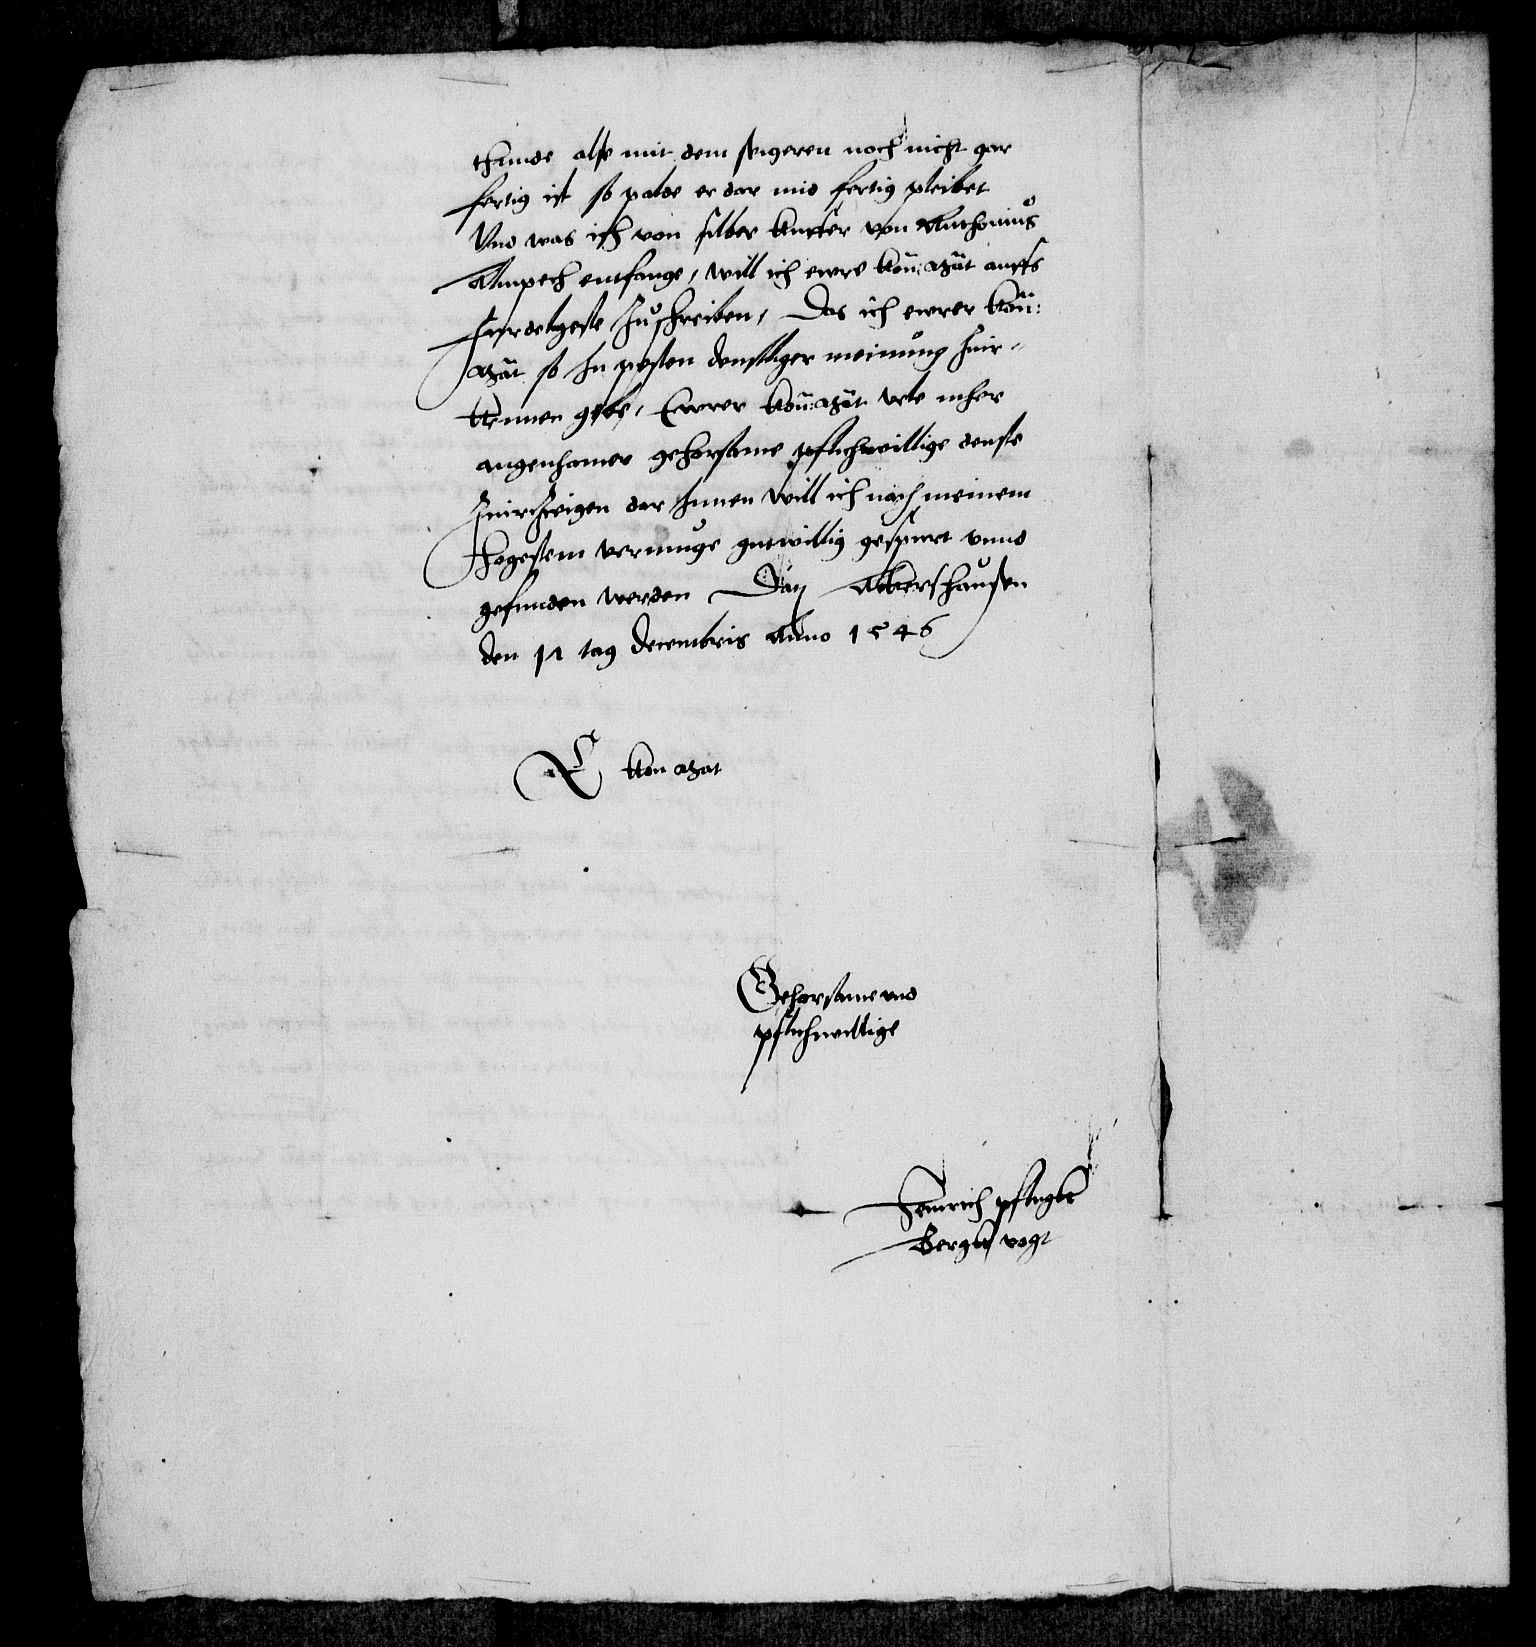 thunde alse mit dem seigeren noch nicht gar
fertig ist so palde er dar mid fertig pleibet
Vnd was ich von silber kupfer von Anthonius
Ampech entfange, will ich ewre kön: Mät auffs
furderlgeste zuschreiben, Das ich ewrer kön:
Mät so In pesten denstliger meinung hir-
kennen gebe, Ewrer kön: Mät vele mher
angenhamer gehorsame pflichwillige denste
zuirzeigen dar Innen will ich nach meinem
hogestem vermuge gutwillig gespurt vnnd
gefunden werden Daty Akkershausen
den 12 tag decembris Anno 1546
E kon Mat
Gehorsame vnd
pflichwillige
Heinrich pflugk
Bergk vogt